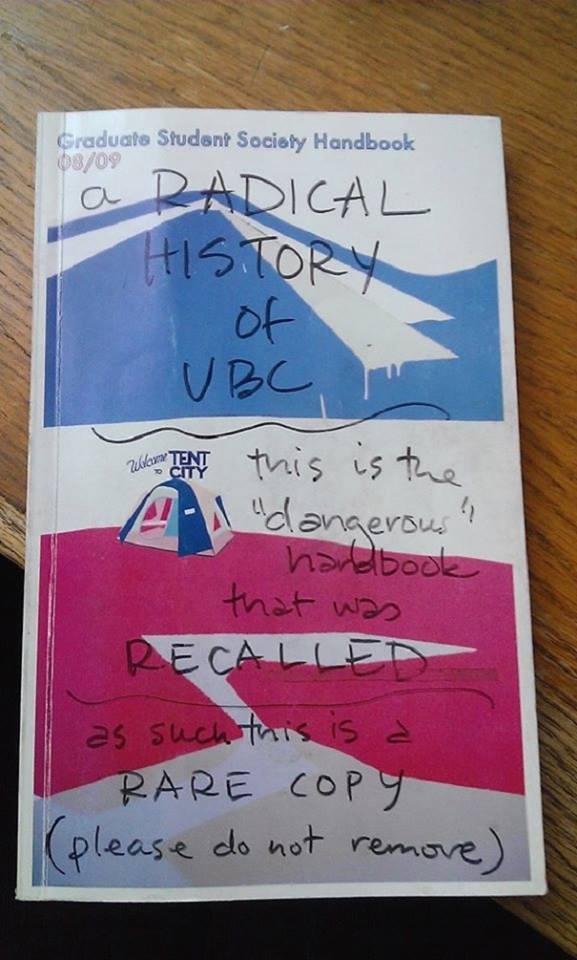 Graduate Student Society Handbook
08/09
a RADICAL
HISTORY
of
UBC
Welcome TO TENT CITY
this is the
"dangerous"
handbook
that was
RECALLED
as such this is a
RARE COPY
(please do not remove)